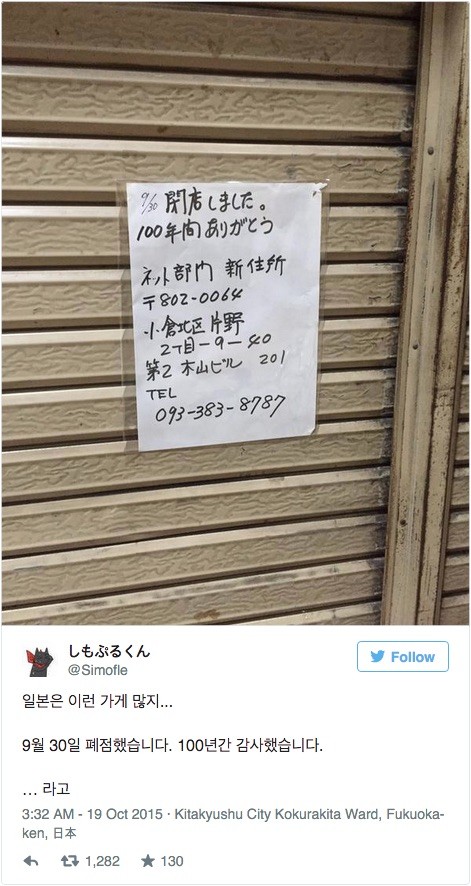 9/30 閉店しました。
100年間ありがとう
ネット部門 新住所
〒802-0064
小倉北区片野
2丁目-9-40
第2 木山ビル 201
TEL
093-383-8787
しもぷるくん
@Simofle
Follow
일본은 이런 가게 많지...
9월 30일 폐점했습니다. 100년간 감사했습니다.
... 라고
3:32 AM - 19 Oct 2015 · Kitakyushu City Kokurakita Ward, Fukuoka-
ken, 日本
1,282 130